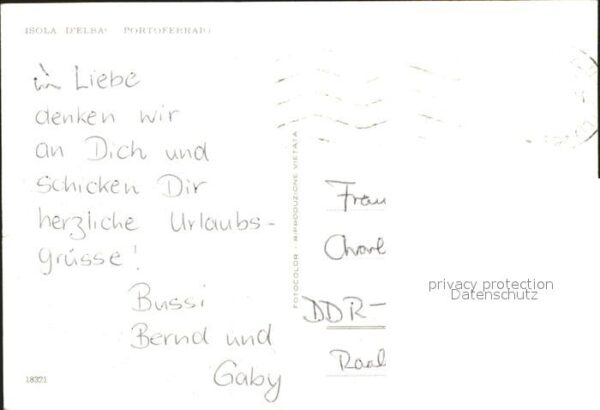 ISOLA D'ELBA - PORTOFERRAIO
in Liebe
denken wir
an Dich und
schicken Dir
herzliche Urlaubs-
grüsse!
Bussi
Bernd und
Gaby
18371
FOTOCOLOR - RIPRODUZIONE VIETATA
Frau
DDR-
privacy protection
Datenschutz